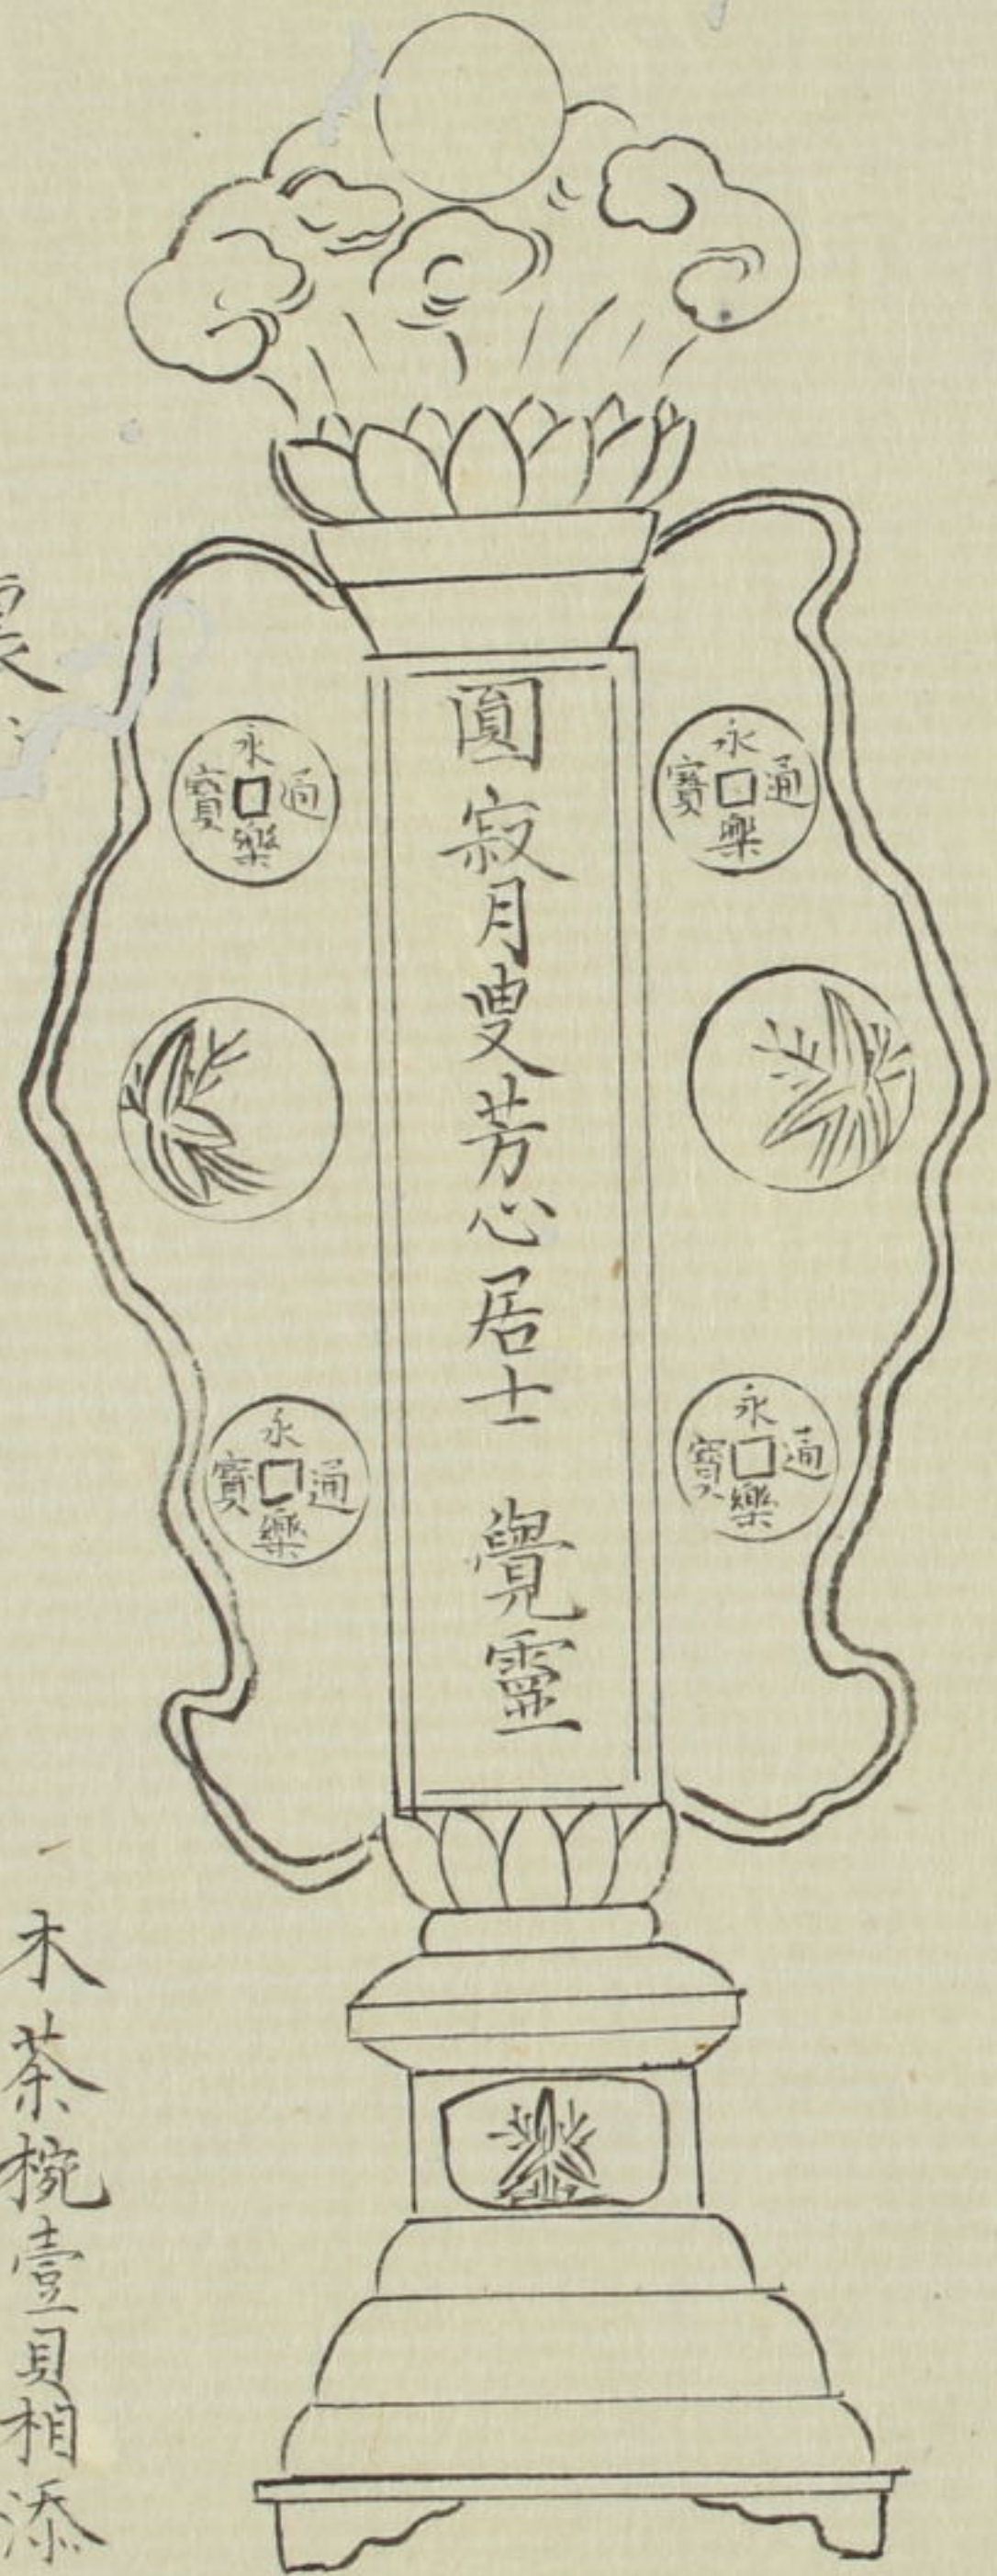 圓寂月叟芳心居士 覺靈
永樂通寶
永樂通寶
永樂通寶
永樂通寶
裏
木茶椀壹貝相添